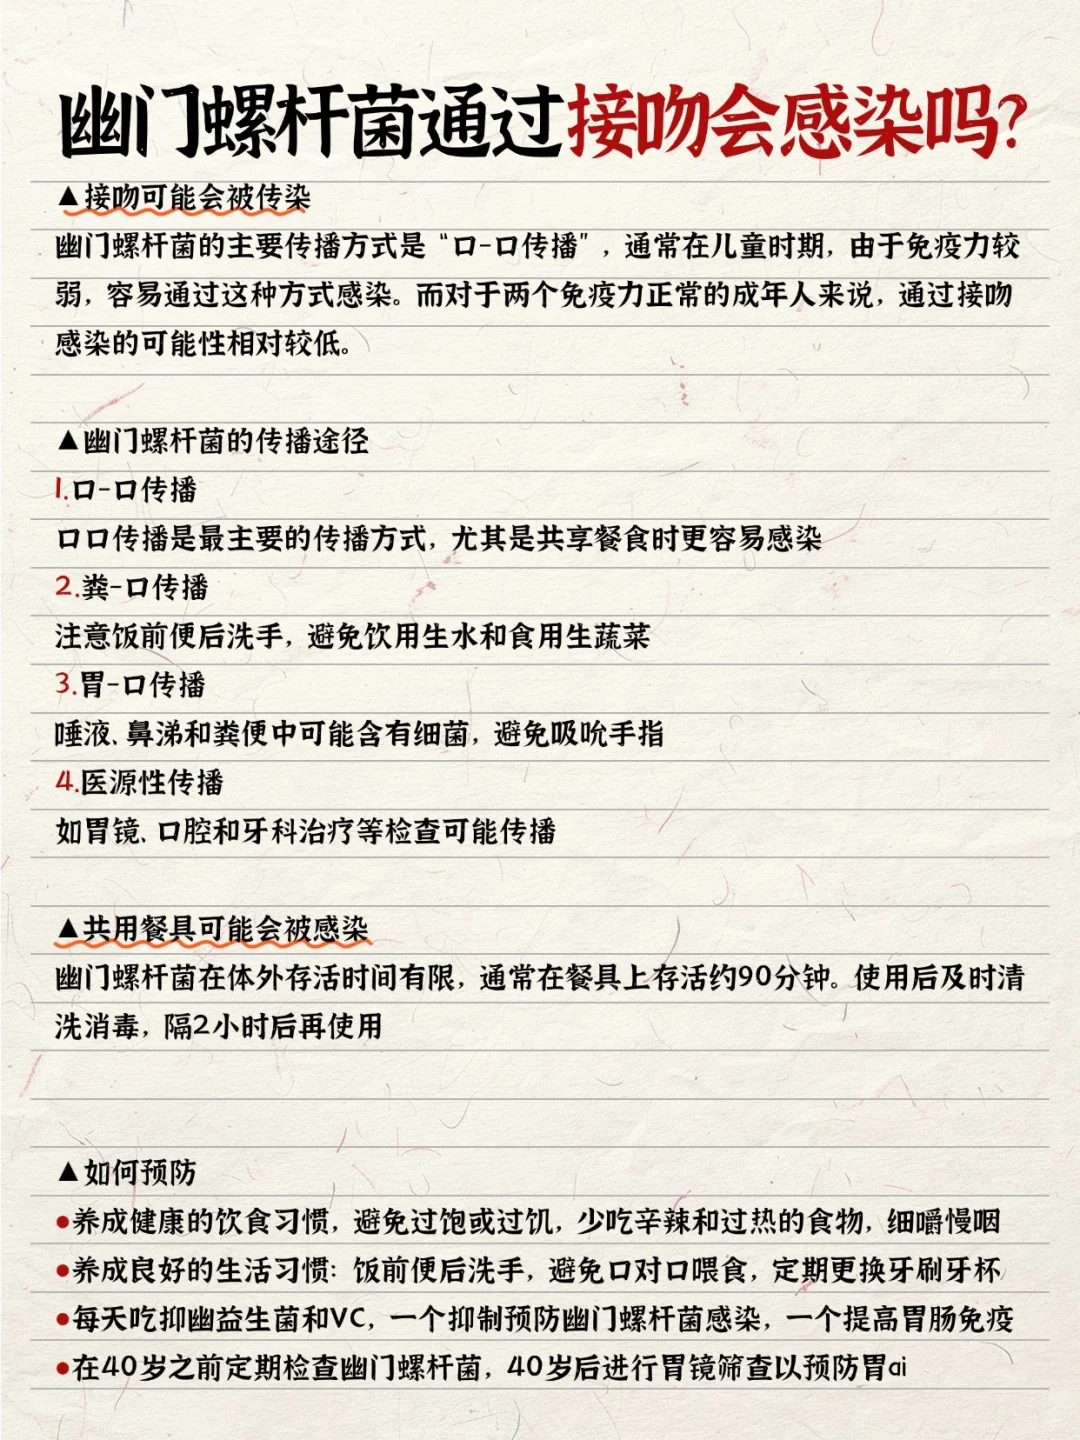 幽门螺杆菌通过接吻会感染吗?
▲接吻可能会被传染
幽门螺杆菌的主要传播方式是“口-口传播”，通常在儿童时期，由于免疫力较
弱，容易通过这种方式感染。而对于两个免疫力正常的成年人来说，通过接吻
感染的可能性相对较低。
▲幽门螺杆菌的传播途径
1.口-口传播
口口传播是最主要的传播方式，尤其是共享餐食时更容易感染
2.粪-口传播
注意饭前便后洗手，避免饮用生水和食用生蔬菜
3.胃-口传播
唾液、鼻涕和粪便中可能含有细菌，避免吸吮手指
4.医源性传播
如胃镜、口腔和牙科治疗等检查可能传播
▲共用餐具可能会被感染
幽门螺杆菌在体外存活时间有限，通常在餐具上存活约90分钟。使用后及时清
洗消毒，隔2小时后再使用
▲如何预防
●养成健康的饮食习惯，避免过饱或过饥，少吃辛辣和过热的食物，细嚼慢咽
●养成良好的生活习惯：饭前便后洗手，避免口对口喂食，定期更换牙刷牙杯
●每天吃抑幽益生菌和VC，一个抑制预防幽门螺杆菌感染，一个提高胃肠免疫
●在40岁之前定期检查幽门螺杆菌，40岁后进行胃镜筛查以预防胃ai